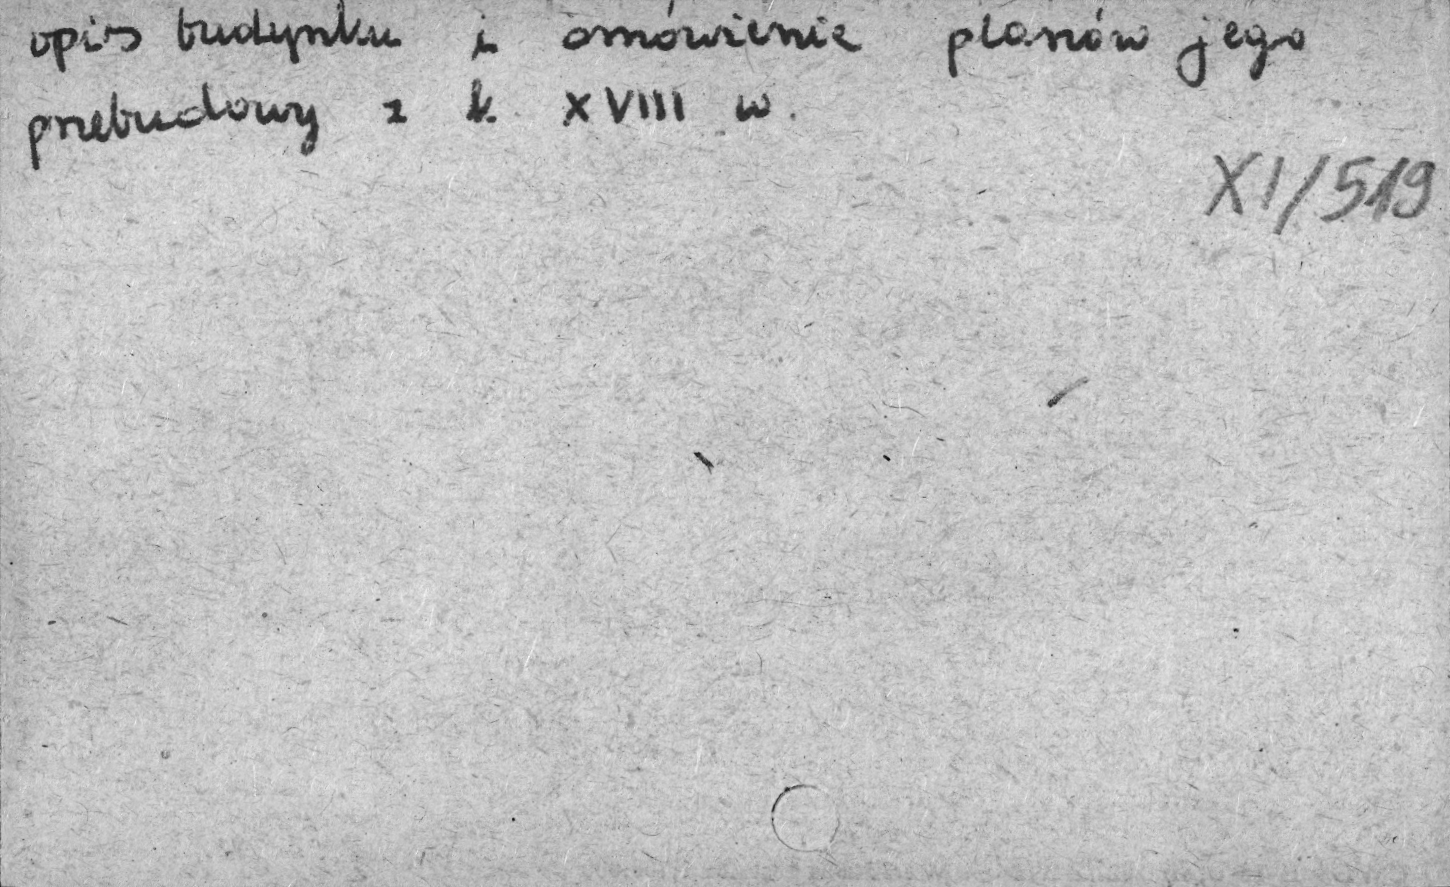 opis budynku i omówienie planów jego
przebudowy z k. XVIII w.
XI/519